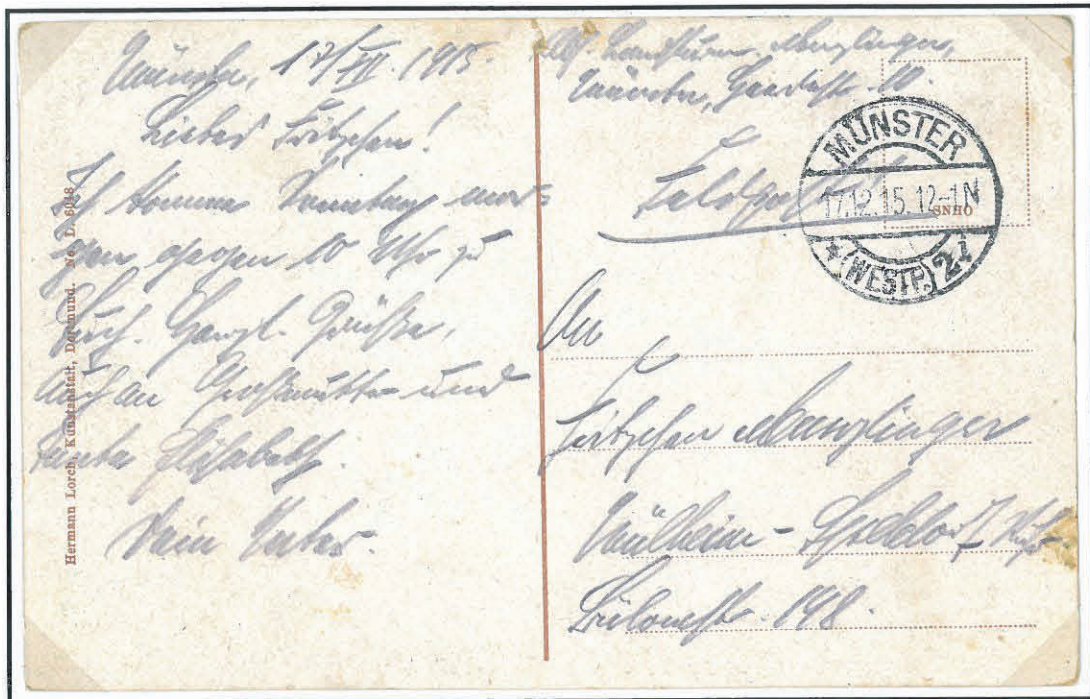 Münster, 17/XII. 1915.
Lieber Fritzchen!
Ich komme Samstag mor-
gen gegen 10 Uhr zu
Euch. Herzl. Grüße,
auch an Großmutter und
Tante Elisabeth.
Dein Vater.
Hermann Lorch, Kunstanstalt, Dortmund. No. D. 6048
Abs. Landsturm.
Münster,
Feldpost
MÜNSTER
17.12.15.12-1N
(WESTF.) 2i
An
Fritzchen
Mülheim - Ruhr.
Bülowstr. 198.